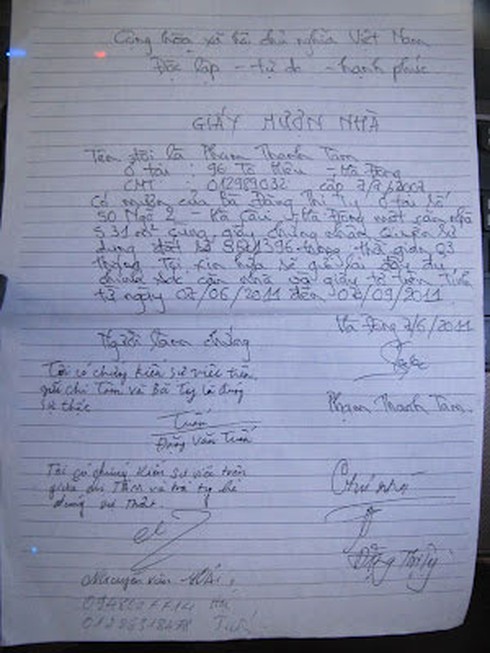 Cộng hòa xã hội chủ nghĩa Việt Nam
Độc lập - tự do - hạnh phúc
GIẤY MƯỢN NHÀ
Tên tôi là Phạm Thanh Tâm
Ở tại : 96 Tô Hiệu - Hà Đông
CMT : 012989032 cấp 7/7/2007
Có mượn của bà Đặng Thị Tỵ ở tại số
50 Ngõ 2 - Hà Đông một căn nhà
S 31m² cùng giấy chứng nhận Quyền sử
dụng đất số trong thời gian 03
tháng Tôi xin hứa sẽ trả lại đầy đủ
căn nhà và giấy tờ trên Tính
từ ngày 07/06/2011 đến 07/09/2011
Hà Đông 7/6/2011
Người làm chứng
Tôi có chứng kiến sự việc trên
giữa chị Tâm và Bà Tỵ là đúng
sự thực
Phạm Thanh Tâm
Tuấn
Đặng Văn Tuấn
Tôi có chứng kiến sự việc trên
giữa Tâm và bà Tỵ là
đúng sự thật
Chủ nhà
Đặng Thị Tỵ
Nguyễn Văn